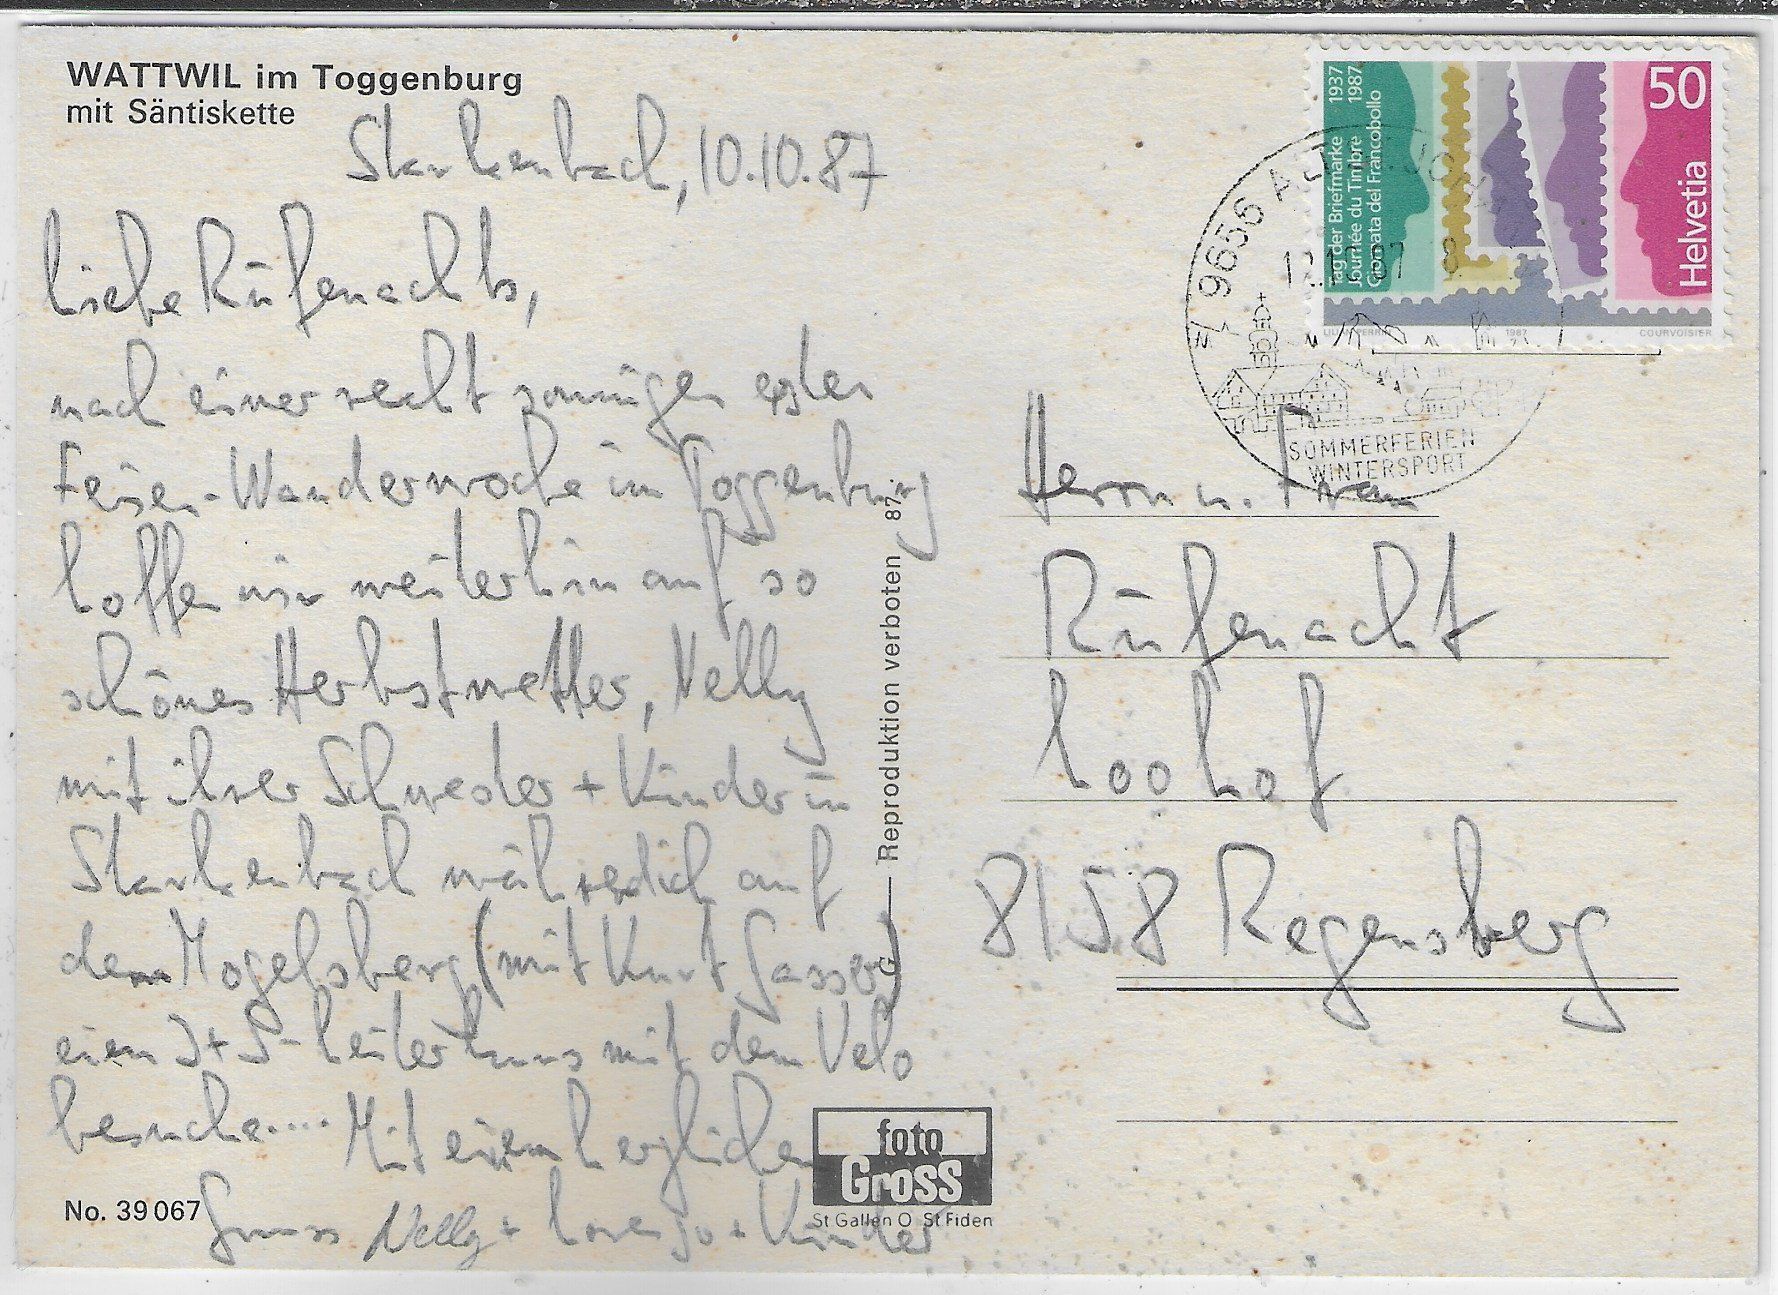 WATTWIL im Toggenburg
mit Säntiskette
Starkenbach, 10.10.87
Liebe Rüfenachts,
nach einer recht sonnigen ersten
Ferien-Wanderwoche im Toggenburg
hoffen wir weiterhin auf so
schönes Herbstwetter, Nelly
mit ihrer Schwester + Kinder in
Starkenbach während ich auf
dem Mogelsberg (mit Kurt Gasser)
einen J+S-Leiterkurs mit dem Velo
besuche.... Mit einem herzlichen
Gruss Nelly + Lorenzo + Kinder
No. 39 067
Reproduktion verboten 87
G
foto
Gross
St Gallen O St Fiden
Tag der Briefmarke 1937
Journée du Timbre 1987
Giornata del Francobollo
50
Helvetia
1987
COURVOISIER
9656
12.10.87 8
SOMMERFERIEN
WINTERSPORT
Herrn u. Frau
Rüfenacht
Loohof
8158 Regensberg